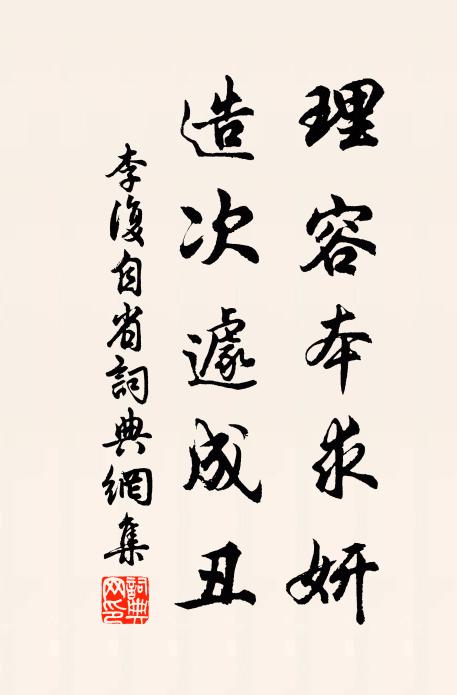 理容本求妍
造次遽成丑
李復自省詞典網集
詞典網印